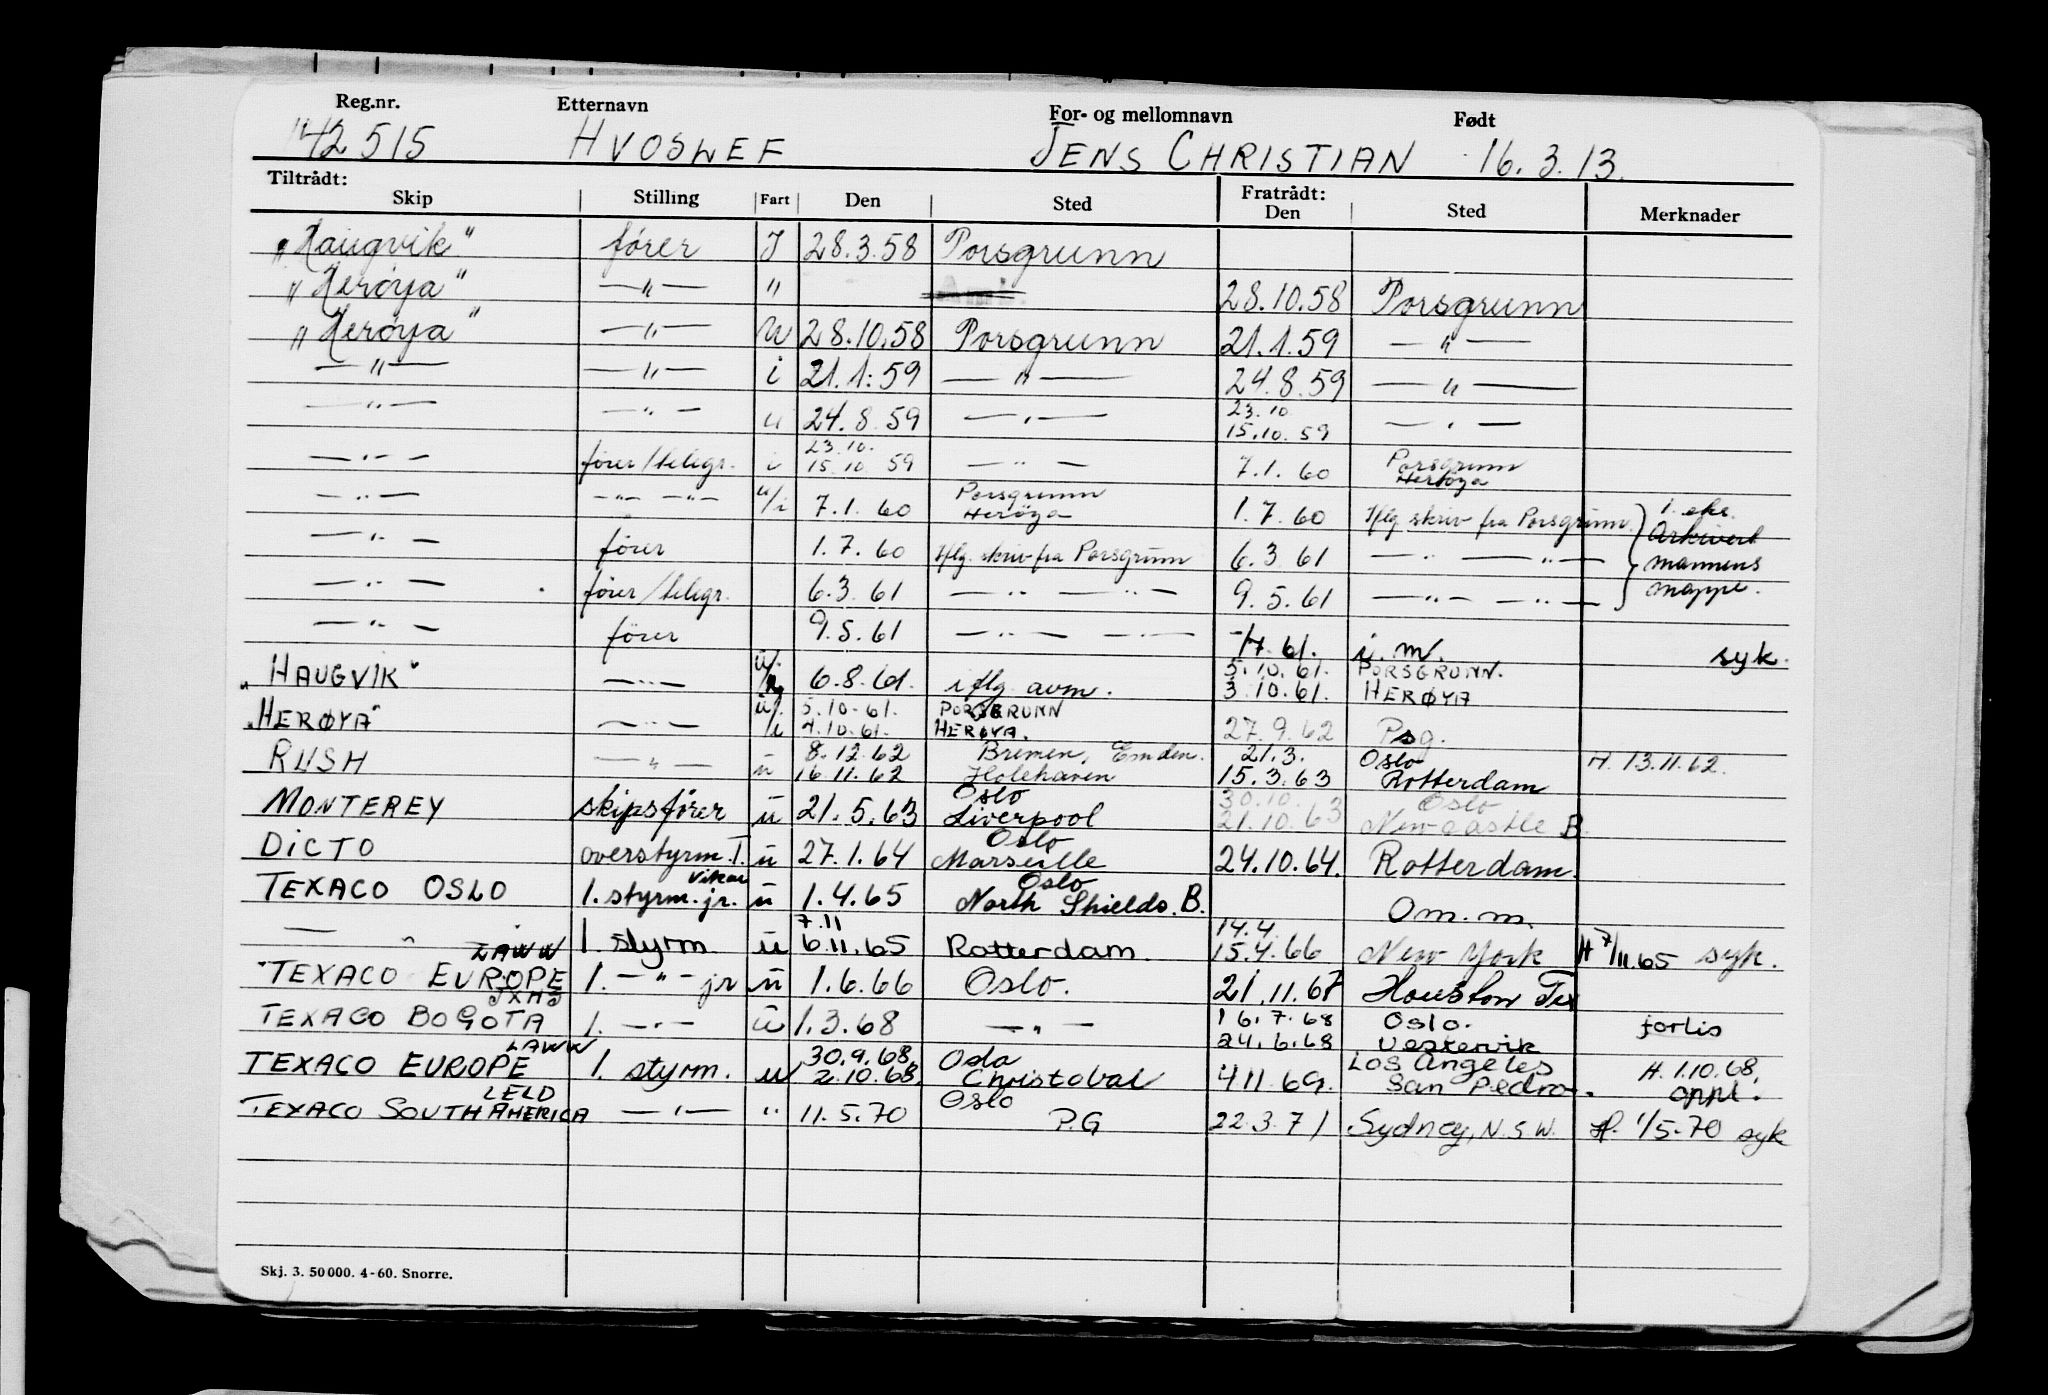 Reg.nr. Etternavn For- og mellomnavn Født
142515 HVOSLEF JENS CHRISTIAN 16.3.13.
Tiltrådt: Fratrådt:
Skip Stilling Fart Den Sted Den Sted Merknader
"Haugvik" fører I 28.3.58 Porsgrunn
"Herøya" —"— " 28.10.58 Porsgrunn
"Herøya" —"— U 28.10.58 Porsgrunn 21.1.59 —"—
—"— —"— i 21.1.59 —"— 24.8.59 —"—
23.10
—"— —"— u 24.8.59 —"— 15.10.59 —"—
23.10.
—"— fører/telegr. i 15.10.59 —"— 7.1.60 Porsgrunn Herøya
—"— —"— —"— u/i 7.1.60 Porsgrunn Herøya 1.7.60 Iflg skriv fra Porsgrunn. 1. eks.
—"— fører 1.7.60 Iflg. skriv fra Porsgrunn 6.3.61 —"— —"— Arkivert
mannens
—"— fører/telegr. 6.3.61 —"— —"— 9.5.61 —"— —"— mappe.
—"— fører 9.5.61 —"— —"— -/7.61. i.m. syk.
5.10.61. PORSGRUNN.
"HAUGVIK" —"— 6.8.61. iflg. avm. 3.10.61. HERØYA
5.10.61. PORSGRUNN
"HERØYA" —"— u/i 4.10.61. HERØYA. 27.9.62 Psg.
8.12.62 Bremen, Emden. 21.3. Oslo
RUSH —"— u 16.11.62 Holehaven 15.3.63 Rotterdam H. 13.11.62.
Oslo 30.10. Oslo
MONTEREY skipsfører u 21.5.63 Liverpool 21.10.63 Newcastle B.
Oslo
DICTO overstyrm. T. u 27.1.64 Marseille 24.10.64. Rotterdam.
vikar Oslo
TEXACO OSLO 1. styrm. jr. u 1.4.65 North Shields. B. Om. m.
7.11 14.4.
— " — 1. styrm u 6.11.65 Rotterdam. 15.4.66 New York H 7/11.65 syk.
LAWW
"TEXACO EUROPE 1. —"— jr u 1.6.66 Oslo. 21.11.67 Houston Tex
JXHJ 16.7.68 Oslo.
TEXACO BOGOTA 1. —"— u 1.3.68 —"— 24.6.68 Vestervik forlis
LAWW 30.9.68. Oslo Los Angeles H. 1.10.68.
TEXACO EUROPE 1. styrm. u 2.10.68. Christobal 4.11.69. San Pedro. oppl.
LELD Oslo
TEXACO SOUTH AMERICA —"— " 11.5.70 P.G 22.3.71 Sydney, N.S.W. H. 1/5-70 syk
Skj. 3. 50 000. 4-60. Snorre.